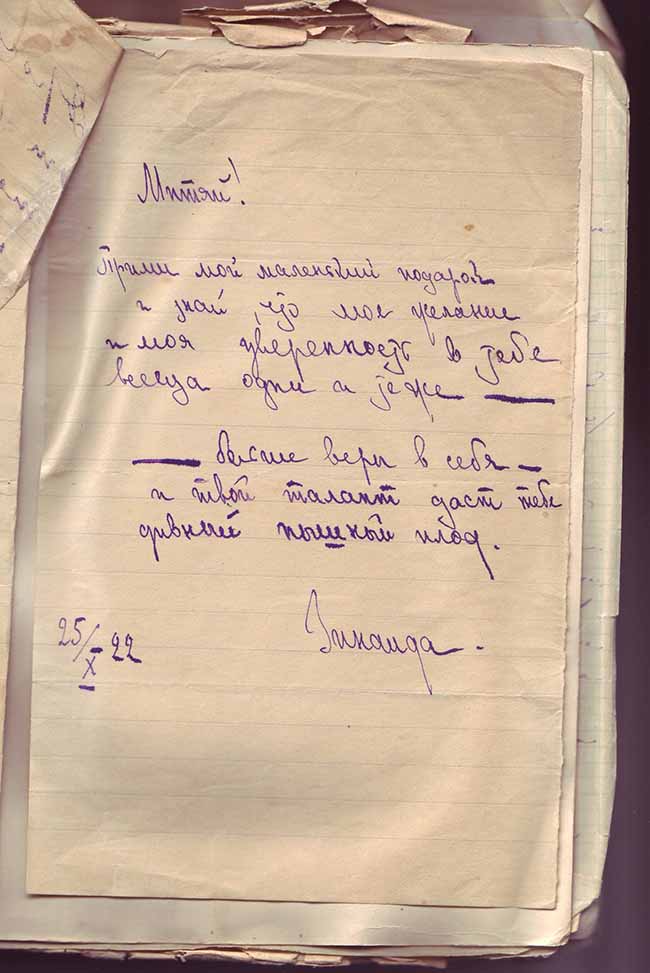 Митяй!
Прими мой маленький подарок
и знай, что мое желание
и моя уверенность в тебе
всегда одни и те же —
— больше веры в себя —
и твой талант даст тебе
дивный пышный плод.
Зинаида.
25/X 22